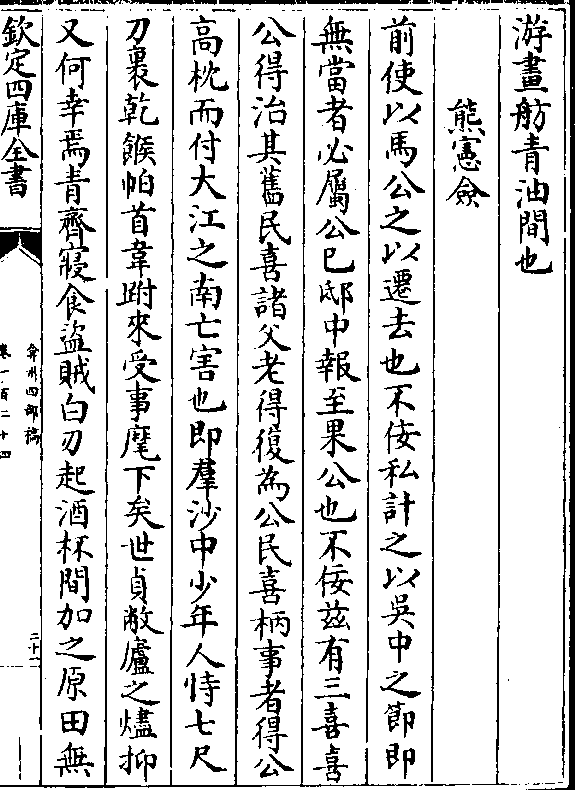 游畫舫青油間也
熊憲僉
前使以馬公之以遷去也不佞私計之以吳中之節即
無當者必屬公已邸中報至果公也不佞兹有三喜喜
公得治其舊民喜諸父老得復為公民喜柄事者得公
高枕而付大江之南亡害也即羣沙中少年人恃七尺
刀裹乾餱帕首韋跗來受事麾下矣世貞敝廬之燼抑
又何幸焉青齊寢食盜賊白刃起酒杯間加之原田無
欽定四庫全書
弇州四部稿
卷一百二十四
二十一